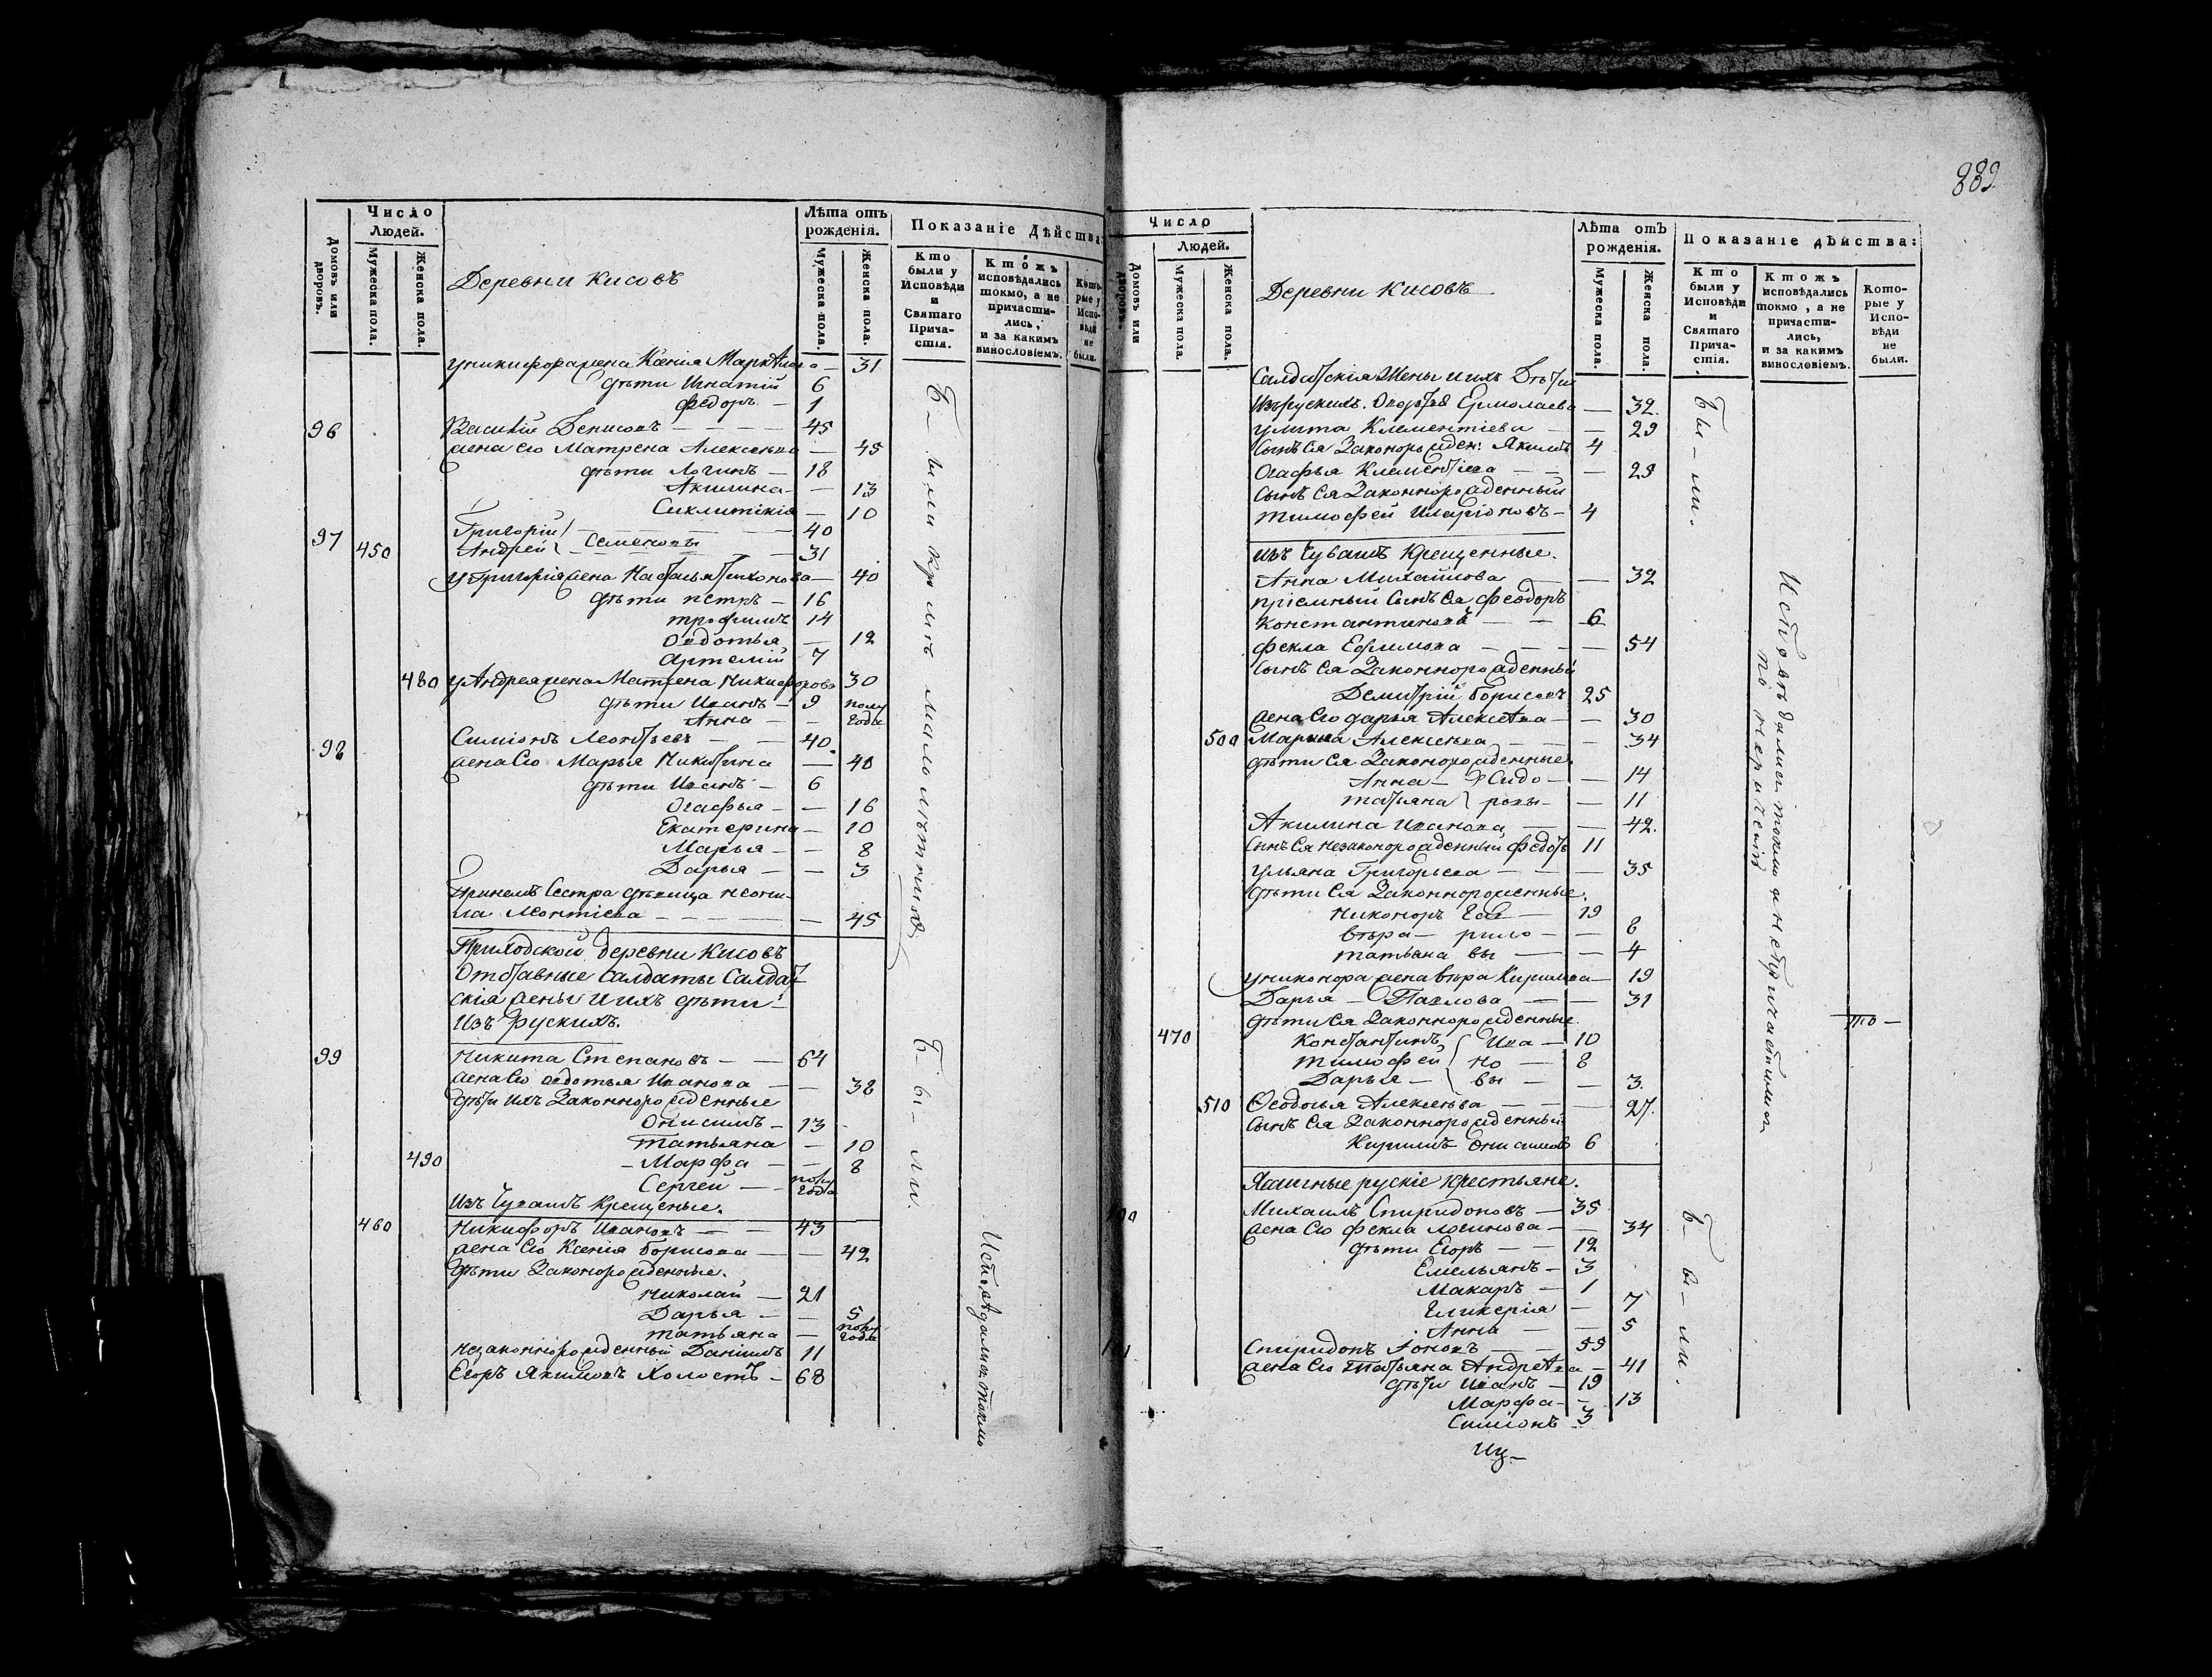 Число
Людей.
Домовъ или дворовъ.
Мужеска пола.
Женска пола.
Деревни Кисовъ
Лѣта отъ рожденія.
Мужеска пола.
Женска пола.
Показаніе Дѣйства:
Кто были у Исповѣди и Святаго Прича-стія.
Ктожъ исповѣдались токмо, а не причасти-лись, и за какимъ винословіемъ.
Кото-рые у Испо-вѣди не были.
у никифора жена Ксенія 31
дѣти Игнатій 6
федоръ — 1
96 Василій Денисовъ — 45
жена его Матрена Алексѣева — 45
дѣти Логинъ — 18
Акилина — 13
Сиклитікія — 10
97 Григорій } Семеновы — 40
450 Андрей — 31
у Григорія жена Настасья Тихонова — 40
дѣти петръ — 16
трофимъ 14
Овдотья — 12
Артемій 7
480 у Андрея жена Матрена Никифорова 30
дѣти Иванъ — 9
Анна — полу года
98 Симіонъ Леонтьевъ — 40
жена его Марья Никитина — 40
дѣти Иванъ — 6
Огафья — 16
Екатерина — 10
Марья — 8
Дарья — 3
При немъ Сестра дѣвица неони-
ла Леонтіева — 45
Приходской деревни Кисовъ
Отставные Салдаты Салдат-
скія жены и ихъ дѣти
Изъ Рускихъ.
99 Никита Степановъ — 64
жена его овдотья Иванова — 38
дѣти ихъ Законнорожденные
Онисимъ — 13
Татьяна — 10
490 Марфа — 8
Сергей — полу года
Изъ Чувашъ Крещеные.
460 Никифоръ Ивановъ — 43
жена его Ксенія Борисова — 42
дѣти Законорожденные.
Николай — 21
Дарья — 5
татьяна — полу года
незаконнорожденный Даніилъ 11
Егоръ Якимовъ Холостъ — 68
Б — ыли кромѣ малолѣтнихъ
Б — ы — ли.
Исповѣдались токмо
889
Число
Людей.
Домовъ или дворовъ.
Мужеска пола.
Женска пола.
Деревни Кисовъ
Лѣта отъ рожденія.
Мужеска пола.
Женска пола.
Показаніе дѣйства:
Кто были у Исповѣди и Святаго Прича-стія.
Ктожъ исповѣдались токмо, а не причасти-лись, и за какимъ винословіемъ.
Кото-рые у Испо-вѣди не были.
Салдатскія Жены и ихъ Дѣти
Изъ рускихъ. Ермолаева — 32.
улита Клементіева — 29
Сынъ Ея Законорожден: Якимъ 4
Огафья Клементіева — 29
Сынъ Ея Законнорожденный
тимофей Иларіоновъ — 4
изъ Чувашъ Крещенные.
Анна Михайлова — 32
пріемный Сынъ Ея феодоръ
Константиновъ — 6
Фекла Ефимова — 54
Сынъ Ея Законнорожденный
Демитрій Борисовъ 25
жена его дарья Алексѣева — 30
500 Марина Алексѣева — 34
дѣти Ея Законорожденные
Анна — } Сидо — 14
татьяна ровы — 11
Акилина Иванова — 42.
Сынъ Ея незаконорожденный федоръ 11
ульяна Григорьева — 35
дѣти Ея Законнорожденные.
Никоноръ Гав — 19
вѣра — рило — 6
татьяна вы — 4
у никонора жена вѣра Кирилова — 19
Дарья — Павлова — 31
дѣти Ея Законнорожденные
470 Константинъ { Ива — 10
тимофей { но — 8
Дарья — { вы — 3
510 Феодосья Алексѣева — 27.
Сынъ Ея Законнорожденный
Кирилъ Онисимовъ 6
Ясашные рускіе Крестьяне.
100 Михаилъ Спиридоновъ — 35
жена его фекла логинова — 34
дѣти Егоръ — 12
Емельянъ — 3
Макаръ — 1
Гликерія — 7
Анна — 5
101 Спиридонъ — 59
жена его Татьяна Андреева — 41
дѣти Иванъ — 19
Марфа — 13
Симіонъ 3
Бы — ли.
Исповѣдались токмо а не причастились
по нерачению
то —
Б — ы — ли.